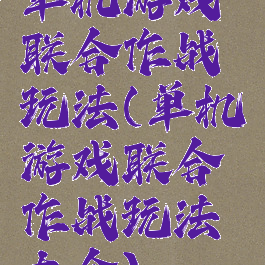 单机游戏
联合作战
玩法(单机
游戏联合
作战玩法
大全)